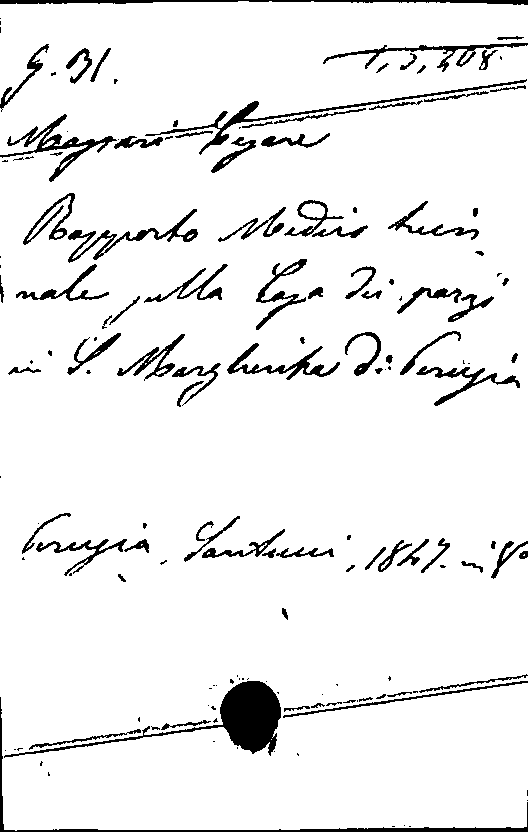 G. 31.
1, 3, 208.
Massari Cesare
Rapporto Medico trien
nale sulla Casa dei pazzi
in S. Margherita di Perugia
Perugia, Santucci, 1847. in 8º